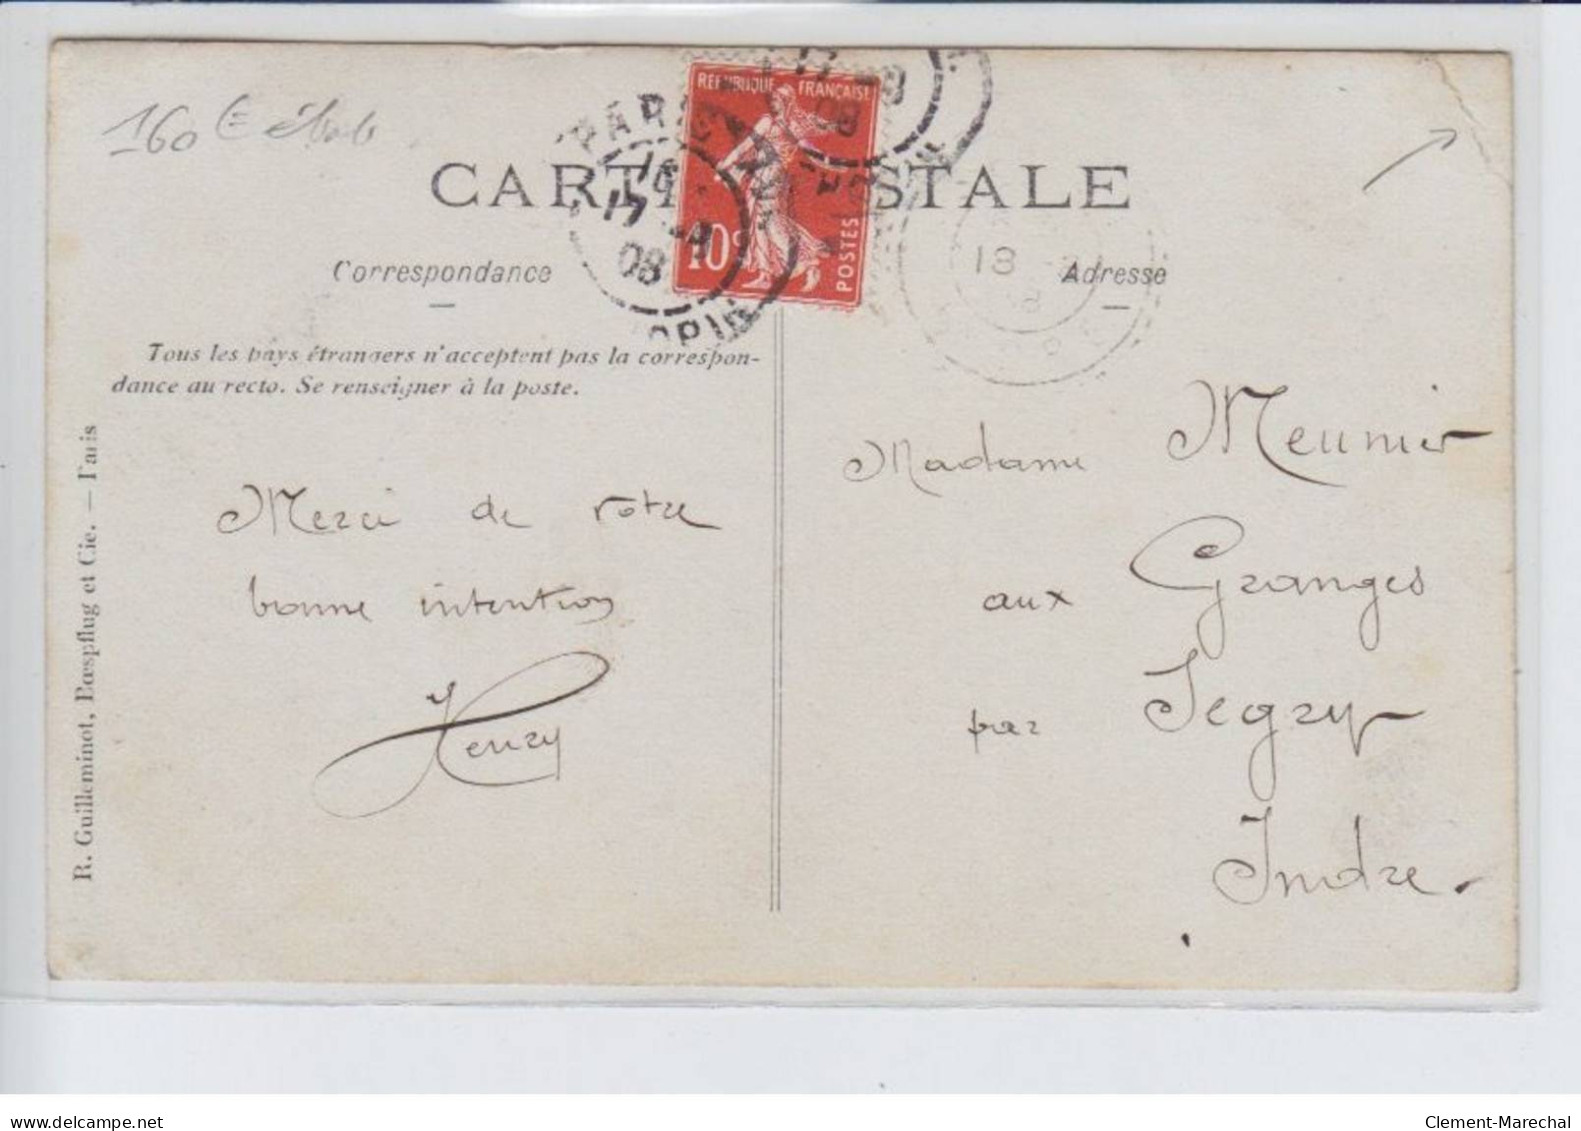 160 €
CARTE POSTALE
REPUBLIQUE FRANÇAISE
10c
POSTES
PARIS
17 -9
08
18
Correspondance
Adresse
Tous les pays étrangers n'acceptent pas la correspon-
dance au recto. Se renseigner à la poste.
R. Guilleminot, Bœspflug et Cie. — Paris
Merci de votre
bonne intention
Henry
Madame Meunier
aux Granges
par Segry
Indre.
www.delcampe.net
Clement-Marechal